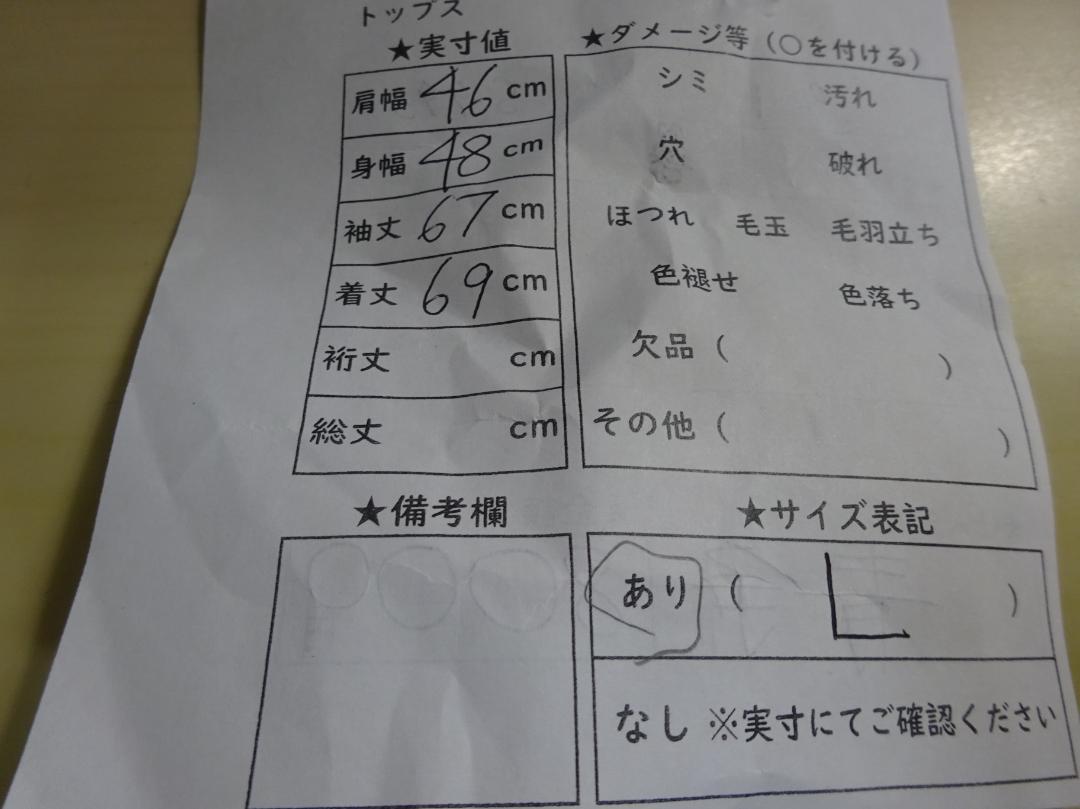 トップス
★実寸値
肩幅 46 cm
身幅 48 cm
袖丈 67 cm
着丈 69 cm
裄丈 cm
総丈 cm
★ダメージ等（○を付ける）
シミ 汚れ
穴 破れ
ほつれ 毛玉 毛羽立ち
色褪せ 色落ち
欠品（ ）
その他（ ）
★備考欄
★サイズ表記
あり（ L ）
なし ※実寸にてご確認ください